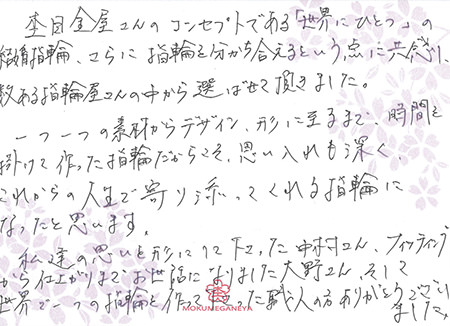 杢目金屋さんのコンセプトである「世界にひとつ」の
結婚指輪、さらに指輪を分かち合えるという点に共感し、
数ある指輪屋さんの中から選ばせて頂きました。
一つ一つの素材からデザイン、形に至るまで、時間を
掛けて作った指輪だからこそ、思い入れも深く、
これからの人生で寄り添ってくれる指輪に
なったと思います。
私達の思いを形にして下さった中村さん、フィッティング
から仕上がりまでお世話になりました大野さん、そして
世界で一つの指輪を作って下さった職人の方ありがとうござい
ました。
MOKUMEGANEYA